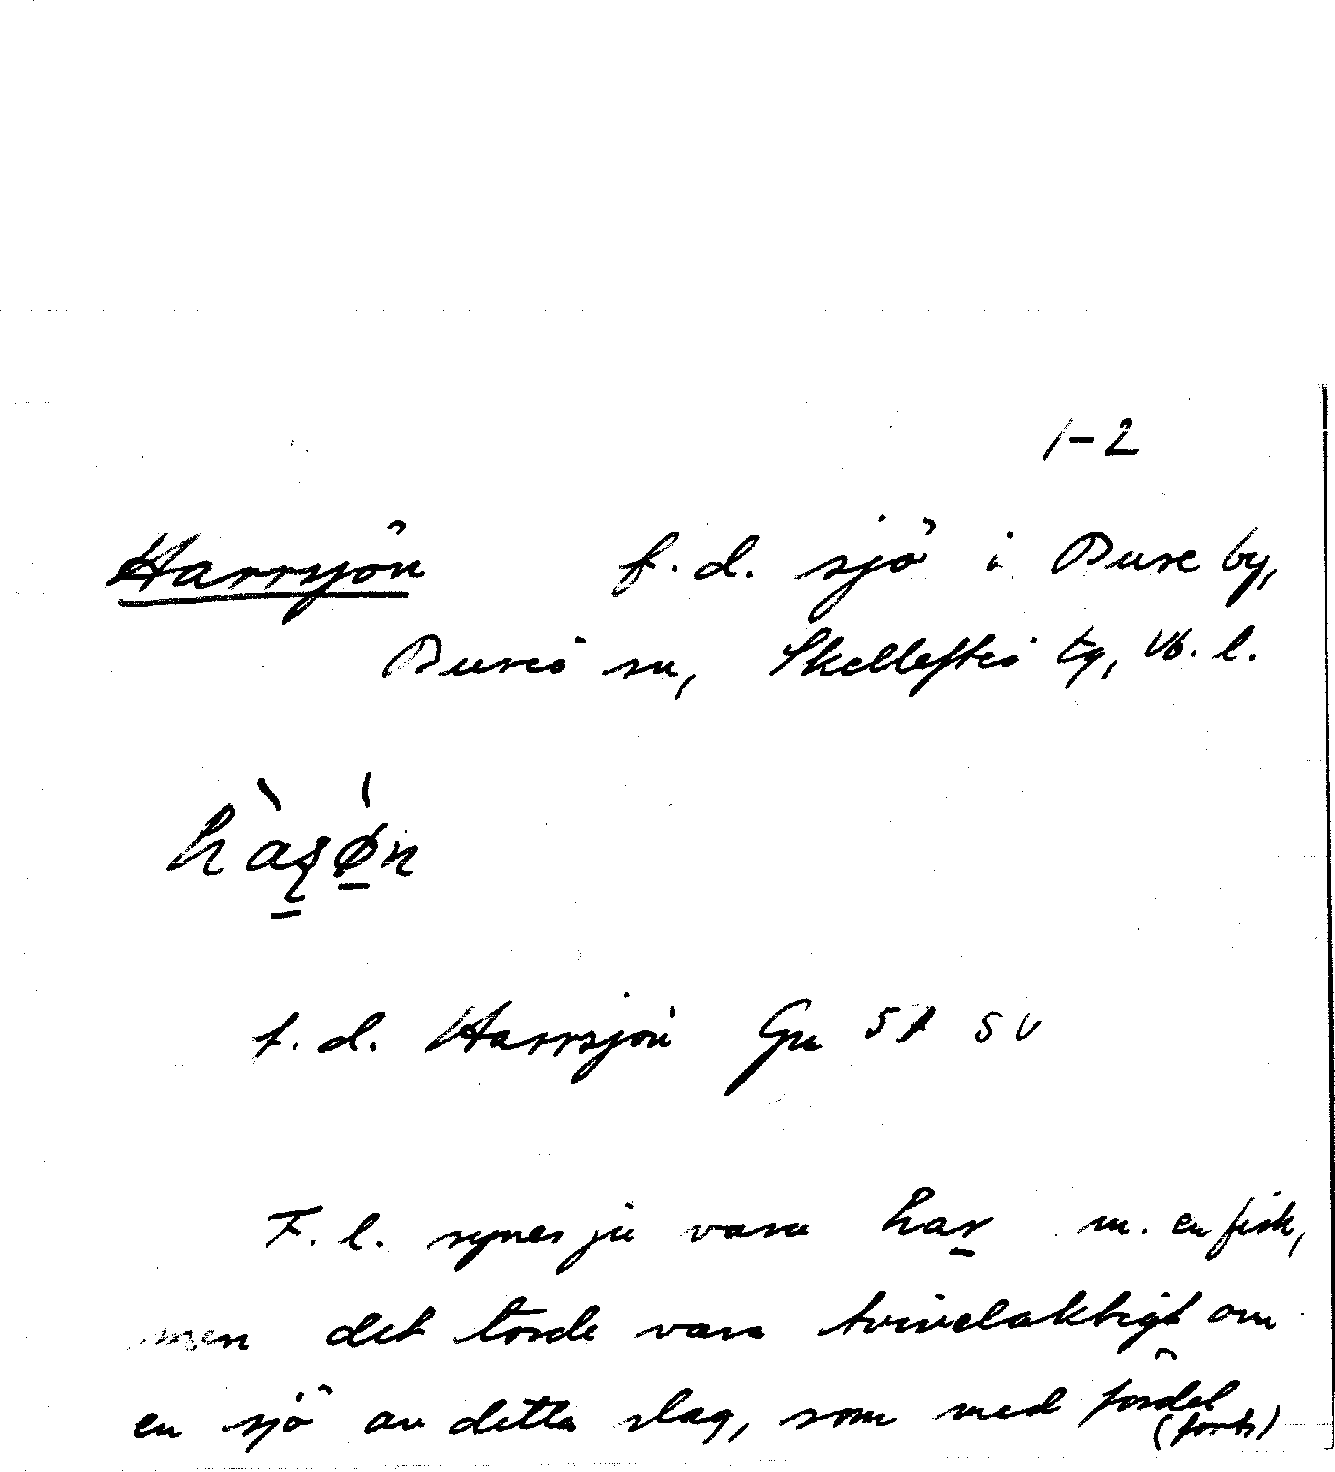 1-2
Harrsjön f.d. sjö i Bure by,
Bureå sn, Skellefteå tg, Vb. l.
f.d. Harrsjön Gu
F. l. synes ju vara har m. en fisk,
men det torde vara tvivelaktigt om
en sjö av detta slag, som med fördel
(forts)